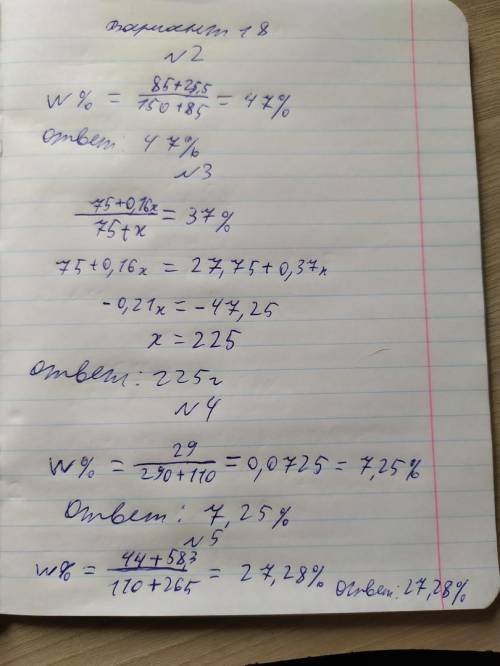 Вариант 18
№2
W% = 85+25,5 / 150+85 = 47%
ответ: 47%
№3
75+0,16x / 75+x = 37%
75+0,16x = 27,75+0,37x
-0,21x = -47,25
x = 225
ответ: 225г
№4
W% = 29 / 290+110 = 0,0725 = 7,25%
Ответ: 7,25%
№5
W% = 44+58,3 / 110+265 = 27,28% Ответ: 27,28%